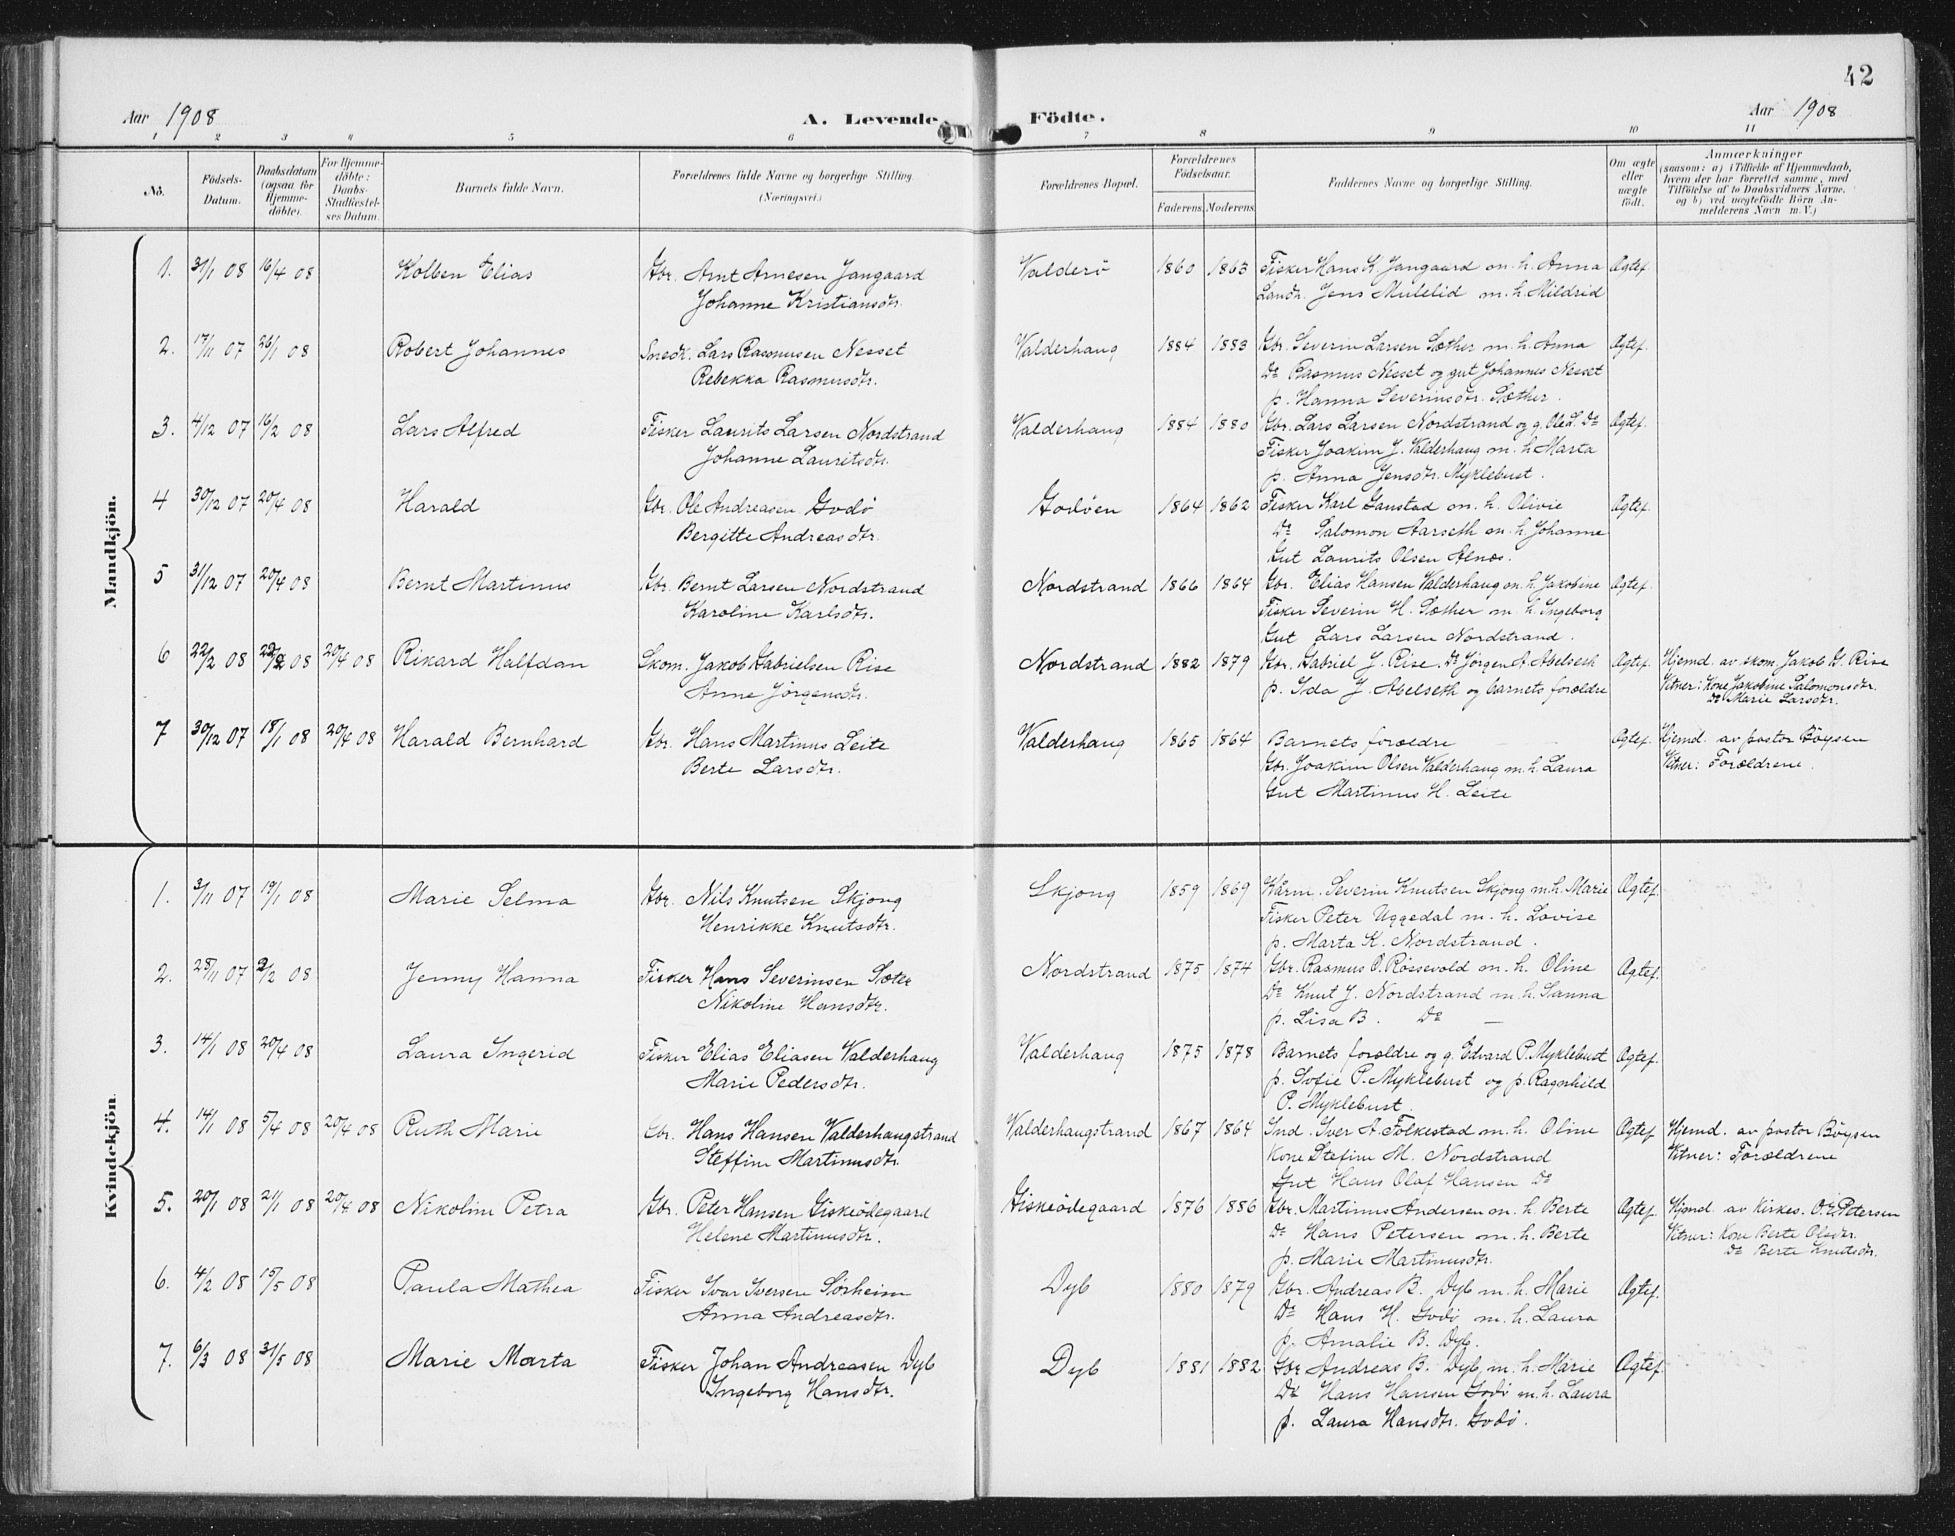 42
Aar 1908 A. Levende Födte. Aar 1908
1 2 3 4 5 6 7 8 9 10 11
No. Födsels-Datum. Daabsdatum (ogsaa for Hjemme-döbte). For Hjemme-döbte: Daabs-Stadfæstelses Datum. Barnets fulde Navn. Forældrenes fulde Navne og borgerlige Stilling. (Næringsvei.) Forældrenes Bopæl. Forældrenes Födselsaar. Faderens. Moderens. Faddernes Navne og borgerlige Stilling. Om ægte eller uægte födt. Anmærkninger (saasom: a) i Tilfælde af Hjemmedaab, hvem der har forrettet samme, med Tilföielse af to Daabsvidners Navne, og b) ved uægtefödte Börn Anmelderens Navn m. V.)
Mandkjön.
1. 31/1 08 16/4 08 Kolben Elias Gbr. Arnt Arnesen Jangaard Valderö 1860 1863 Fisker Hans K. Jangaard m. h. Anna Ægtef.
Johanne Kristiansdtr. Landh. Jens Mulelid m. h. Mildrid
2. 17/11 07 26/1 08 Robert Johannes Snedk. Lars Rasmusen Nesset Valderhaug 1884 1883 Gbr. Severin Larsen Sæther m. h. Anna Ægtef.
Rebekka Rasmusdtr. Do Rasmus Nesset og gut Johannes Nesset
p. Hanna Severinsdtr. Sæther.
3. 4/12 07 16/2 08 Lars Alfred Fisker Laurits Larsen Nordstrand Valderhaug 1884 1880 Gbr. Lars Larsen Nordstrand og g. Ole L. Do Ægtef.
Johanne Lauritsdtr. Fisker Joakim J. Valderhaug m. h. Marta
p. Anna Jensdtr. Myklebust.
4 30/12 07 20/4 08 Harald Gbr. Ole Andreasen Godö Godöen 1864 1862 Fisker Karl Gaustad m. h. Olivie Ægtef.
Bergitte Andreasdtr. Do Salomon Aarseth m. h. Johanne
Gut Laurits Olsen Alnæs.
5 31/12 07 20/4 08 Bernt Martinus Gbr. Bernt Larsen Nordstrand Nordstrand 1866 1864 Gbr. Elias Hansen Valderhaug m. h. Jakobine Ægtef.
Karoline Karlsdtr. Fisker Severin H. Sæther m. h. Ingeborg
Gut Lars Larsen Nordstrand.
6 22/2 08 22/2 08 20/4 08 Rikard Halfdan Skom. Jakob Gabrielsen Rise Nordstrand 1882 1879 Gbr. Gabriel J. Rise. Do Jörgen A. Abelseth Ægtef. Hjemd. av skom. Jakob G. Rise
Anne Jörgensdtr. p. Ida J. Abelseth og barnets forældre Vitner: Kone Jakobine Salomonsdtr.
Do Marie Larsdtr.
7 30/12 07 18/1 08 20/4 08 Harald Bernhard Gbr. Hans Martinus Leite Valderhaug 1865 1864 Barnets forældre Ægtef. Hjemd. av pastor Böysen
Berte Larsdtr. Gbr. Joakim Olsen Valderhaug m. h. Laura Vitner: Forældrene.
Gut Martinus H. Leite
Kvindekjön.
1. 3/11 07 19/1 08 Marie Selma Gbr. Nils Knutsen Skjong Skjong 1859 1869 Kårm. Severin Knutsen Skjong m. h. Marie Ægtef.
Henrikke Knutsdtr. Fisker Peter Uggedal m. h. Lovise
p. Marta K. Nordstrand.
2. 28/11 07 2/2 08 Jenny Hanna Fisker Hans Severinsen Sæter Nordstrand 1875 1874 Gbr. Rasmus O. Røssevold m. h. Oline Ægtef.
Nikoline Hansdtr. Do Knut J. Nordstrand m. h. Sanna
p. Lisa B. Do —
3. 14/1 08 20/4 08 Laura Ingerid Fisker Elias Eliasen Valderhaug Valderhaug 1875 1878 Barnets forældre og g. Edvard P. Myklebust Ægtef.
Marie Pedersdtr. p. Sofie P. Myklebust og p. Ragnhild
P. Myklebust
4. 14/1 08 5/4 08 20/4 08 Ruth Marie Gbr. Hans Hansen Valderhaugstrand Valderhaugstrand 1867 1864 Snd. Iver A. Folkestad m. h. Oline Ægtef Hjemd. av pastor Böysen
Steffine Martinusdtr. Kone Stefine M. Nordstrand Vitner: Forældrene
Gut Hans Olaf Hansen Do
5. 20/1 08 21/1 08 20/4 08 Nikoline Petra Gbr. Peter Hansen Giskeödegaard Giskeödegaard 1876 1886 Gbr. Martinus Andersen m. h. Berte Ægtef. Hjemd av Kirkes. Petersen
Helene Martinusdtr. Do Hans Petersen m. h. Berte Vitner: Kone Berte Olsdtr.
p. Marie Martinusdtr. Do Berte Knutsdtr.
6. 4/2 08 15/5 08 Paula Mathea Fisker Ivar Iversen Sörheim Dyb 1880 1879 Gbr. Andreas B. Dyb m. h. Marie Ægtef.
Anna Andreasdtr. Do Hans H. Godö m. h. Laura
p. Amalie B. Dyb.
7. 6/3 08 31/5 08 Marie Marta Fisker Johan Andreasen Dyb Dyb 1881 1882 Gbr Andreas B. Dyb m. h. Marie Ægtef.
Ingeborg Hansdtr. Do Hans Hansen Godö m. h. Laura
p. Laura Hansdtr. Godö.